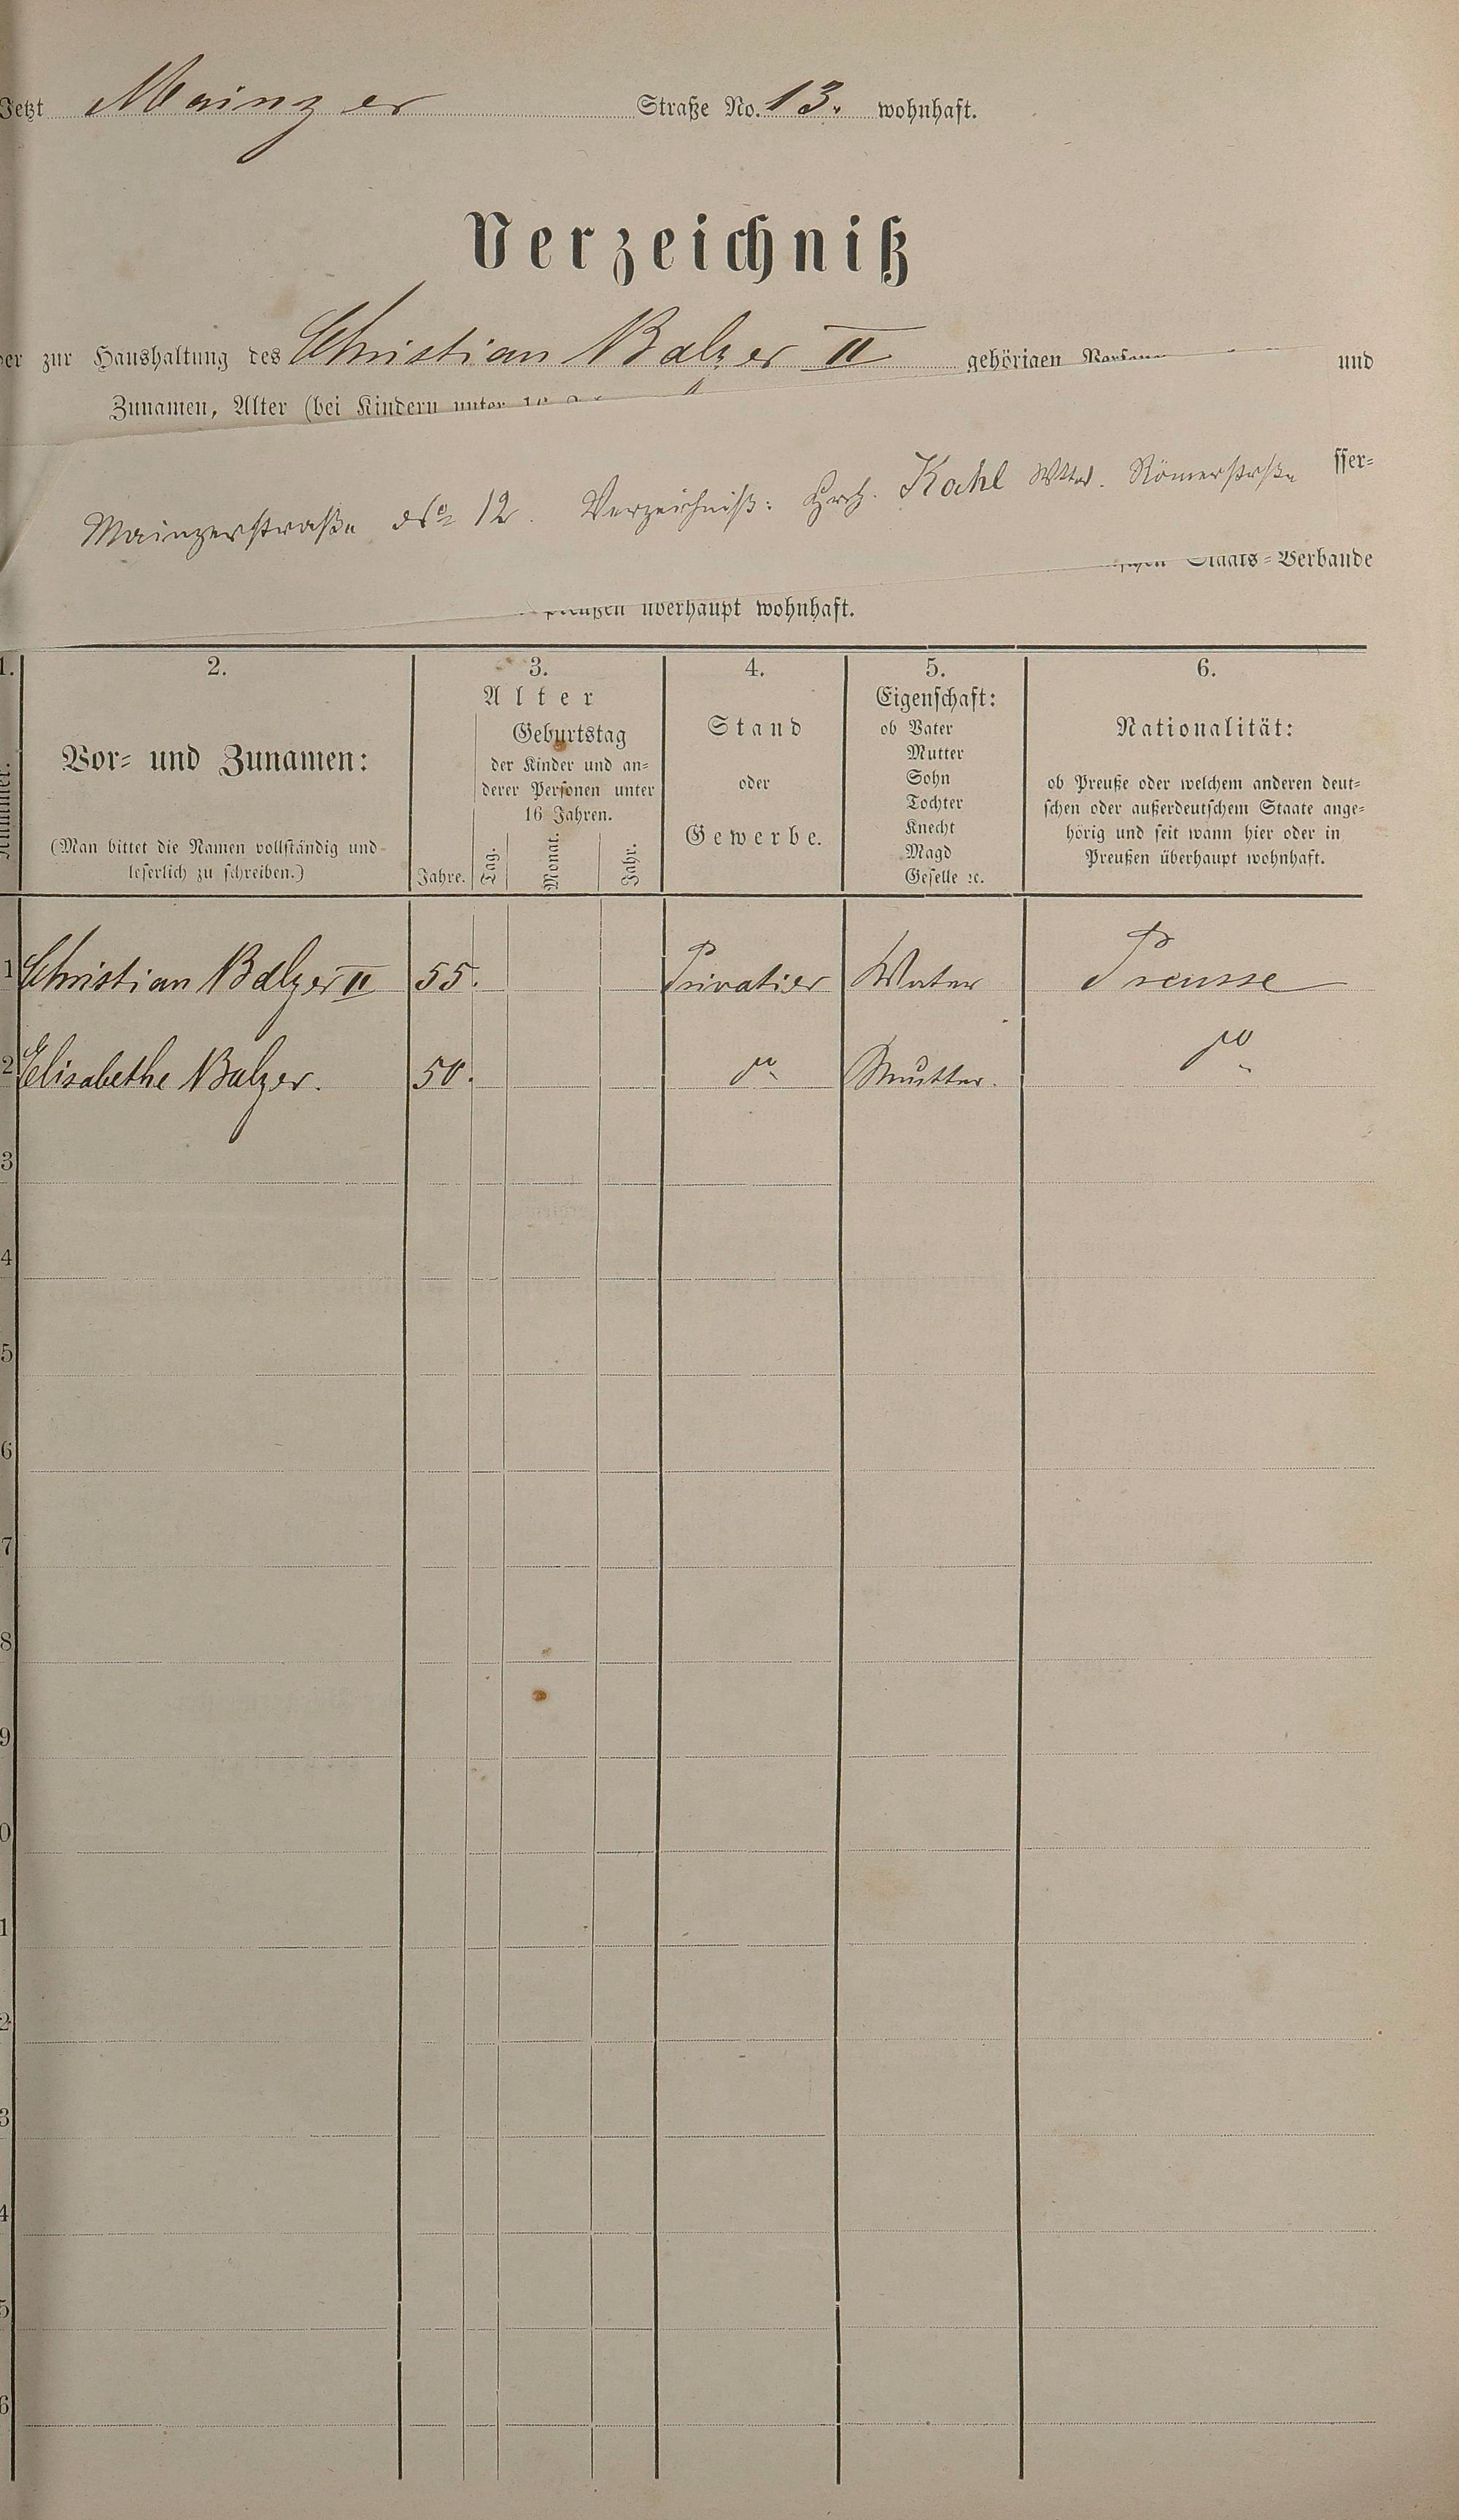 Jetzt Mainzer Straße No. 13. wohnhaft.
Verzeichniß
der zur Haushaltung des Christian Balzer II gehörigen Personen und
Zunamen, Alter (bei Kindern unter
Mainzerstraße No 12. Verzeichniß: Kahl Wttw. Römerstraße
sser=
Staats=Verbande
Preußen überhaupt wohnhaft.
1. 2. 3. 4. 5. 6.
Nummer.
Vor= und Zunamen:
(Man bittet die Namen vollständig und
leserlich zu schreiben.)
Alter
Jahre.
Geburtstag
der Kinder und an=
derer Personen unter
16 Jahren.
Tag. Monat. Jahr.
Stand
oder
Gewerbe.
Eigenschaft:
ob Vater
Mutter
Sohn
Tochter
Knecht
Magd
Geselle ꝛc.
Nationalität:
ob Preuße oder welchem anderen deut=
schen oder außerdeutschem Staate ange=
hörig und seit wann hier oder in
Preußen überhaupt wohnhaft.
1 Christian Balzer II 55. Privatier Vater Preusse
2 Elisabethe Balzer. 50. do Mutter. do
3
4
5
6
7
8
9
0
1
2
3
4
5
6